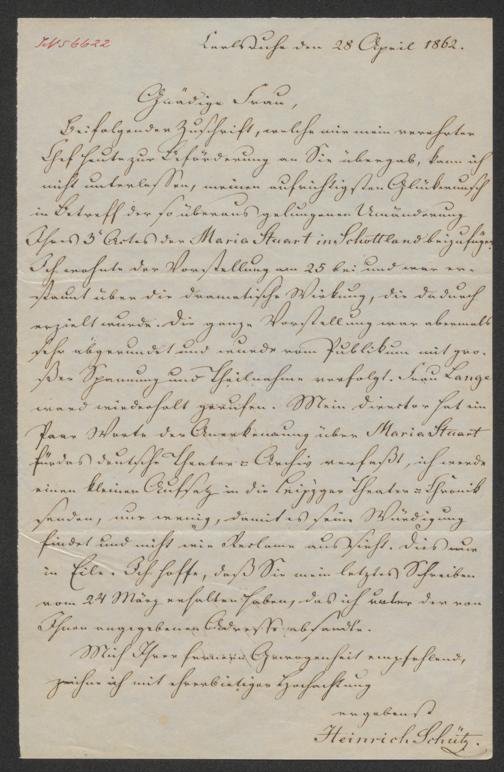 IN 56622
Carlsruhe den 28 April 1862.
Gnädige Frau,
Beifolgender Zuschrift, welche mir mein verehrter
Chef heute zur Beförderung an Sie übergab, kann ich
nicht unterlassen, meinen aufrichtigsten Glückwunsch
in Betreff der so überaus gelungenen Umänderung
Ihres 3t Actes der Maria Stuart in Schottland beizufügen.
Ich wohnte der Vorstellung am 25 bei und war er-
staunt über die dramatische Wirkung, die dadurch
erzielt wurde. Die ganze Vorstellung war abermals
sehr abgerundet und wurde vom Publikum mit gro-
ßer Spannung und Theilnahme verfolgt. Frau Lange
ward wiederholt gerufen. Mein Director hat ein
Paar Worte der Anerkennung über Maria Stuart
für das deutsche Theater-Archiv verfaßt, ich werde
einen kleinen Aufsatz in die Leipziger Theater-Chronik
senden, nur wenig, damit es seine Würdigung
findet und nicht wie Reclame aussieht. Dies nur
in Eile. Ich hoffe, daß Sie mein letztes Schreiben
vom 24 März erhalten haben, das ich unter der von
Ihnen angegebenen Addresse absandte.
Mich Ihrer ferneren Gewogenheit empfehlend,
zeichne ich mit ehrerbietiger Hochachtung
ergebenst
Heinrich Schütz.